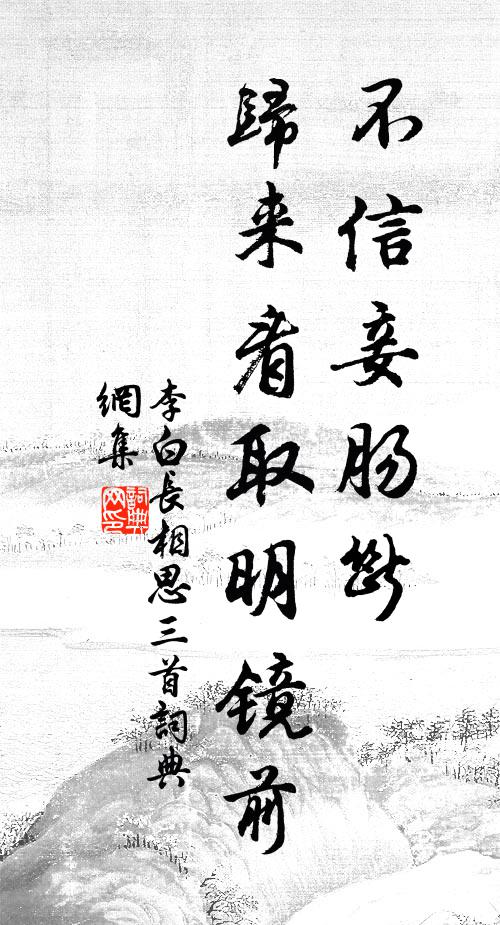 不信妾肠斷
歸来看取明鏡前
李白長相思三首詞典
網集
詞典
网印